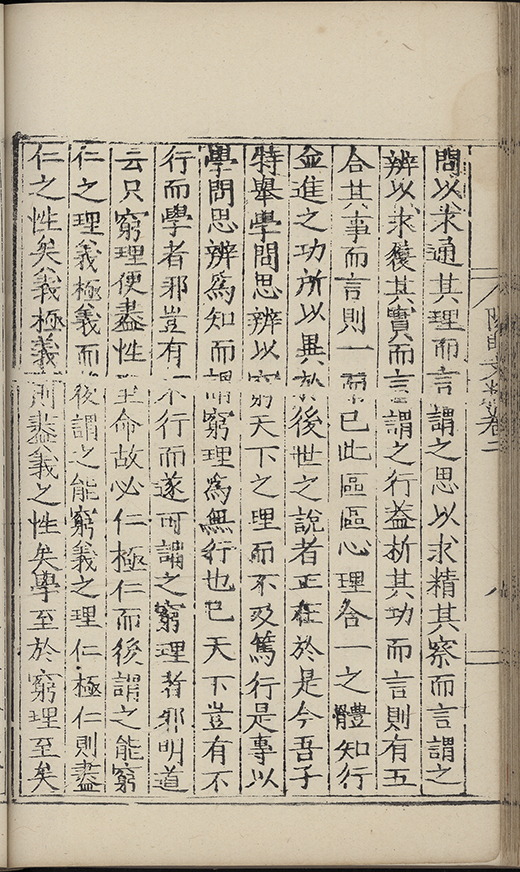 陽明文卷
問以求通其理而言謂之思以求精其察而言謂之
辨以求履其實而言謂之行蓋析其功而言則有五
合其事而言則一而已此區區心理合一之體知行
並進之功所以異於後世之說者正在於是今吾子
特舉學問思辨以窮天下之理而不及篤行是專以
學問思辨爲知而謂窮理爲無行也已天下豈有不
行而學者邪豈有不行而遂可謂之窮理者邪明道
云只窮理便盡性至命故必仁極仁而後謂之能窮
仁之理義極義而後謂之能窮義之理仁極仁則盡
仁之性矣義極義則盡義之性矣學至於窮理至矣